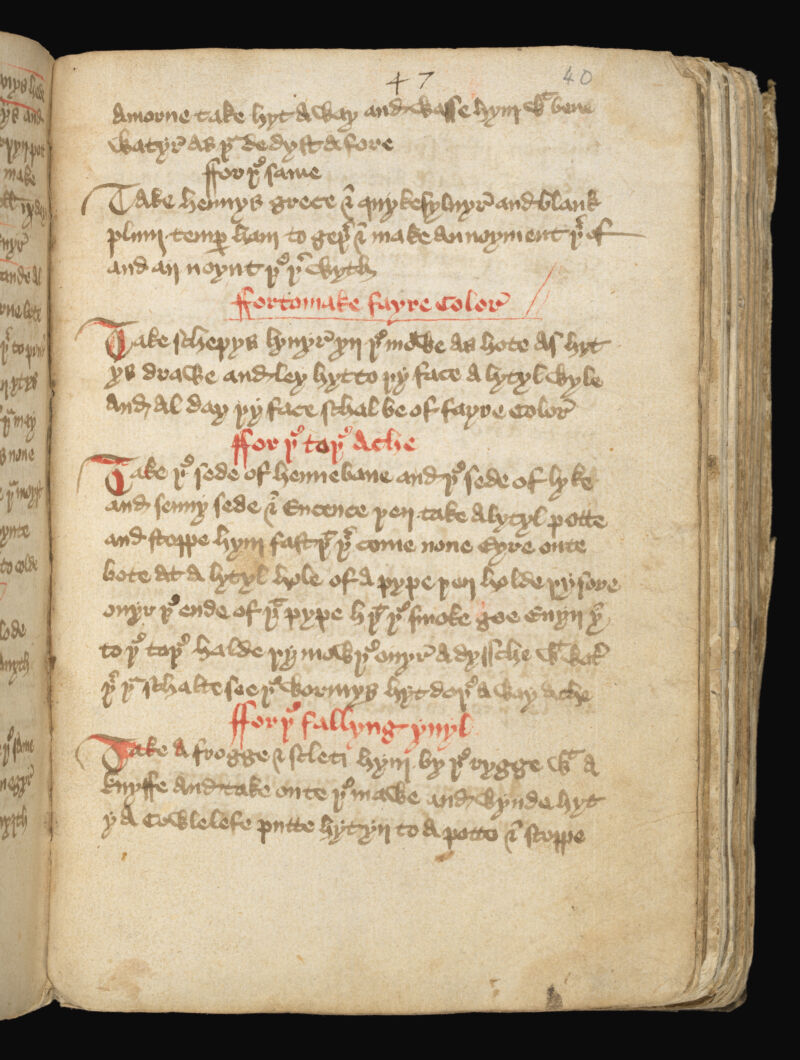 47 40
amorne take hyt away and wasse hym wt bene
watyr as þu dedyst afore
ffor þe same
Take hennys grece & quykesylvyr and blank
plum temper ham to geþer & make annoyment þer of
and an noynt þe þer wyth
ffor to make fayre Color
Take schepys lynyr yn þe mowe as hote as hyt
ys drawe and ley hyt to þy face a lytyl wyle
and al day þy face schal be of fayre Color
ffor þe toþe Ache
Take þe sede of hennebane and þe sede of lyke
and senvy sede & Encence þen take a lytyl potte
and stoppe hym fast þt þer come none Eyre oute
bote at a lytyl hole of a pype þen holde þy sore
onyr þe ende of þt pype þt þe smoke goe Enyn yn
to þe toþe halde þy mowþe onyr a dyssche wt water
þer þu schalt see þe wormys hyt doþe away ache
ffor þe fallyng ynyl
Take a frogge & scleti hym by þe rygge wt a
knyffe and take oute þe mawe and wynde hyt
y a Cowlelefe putte hyt yn to a potte & stoppe